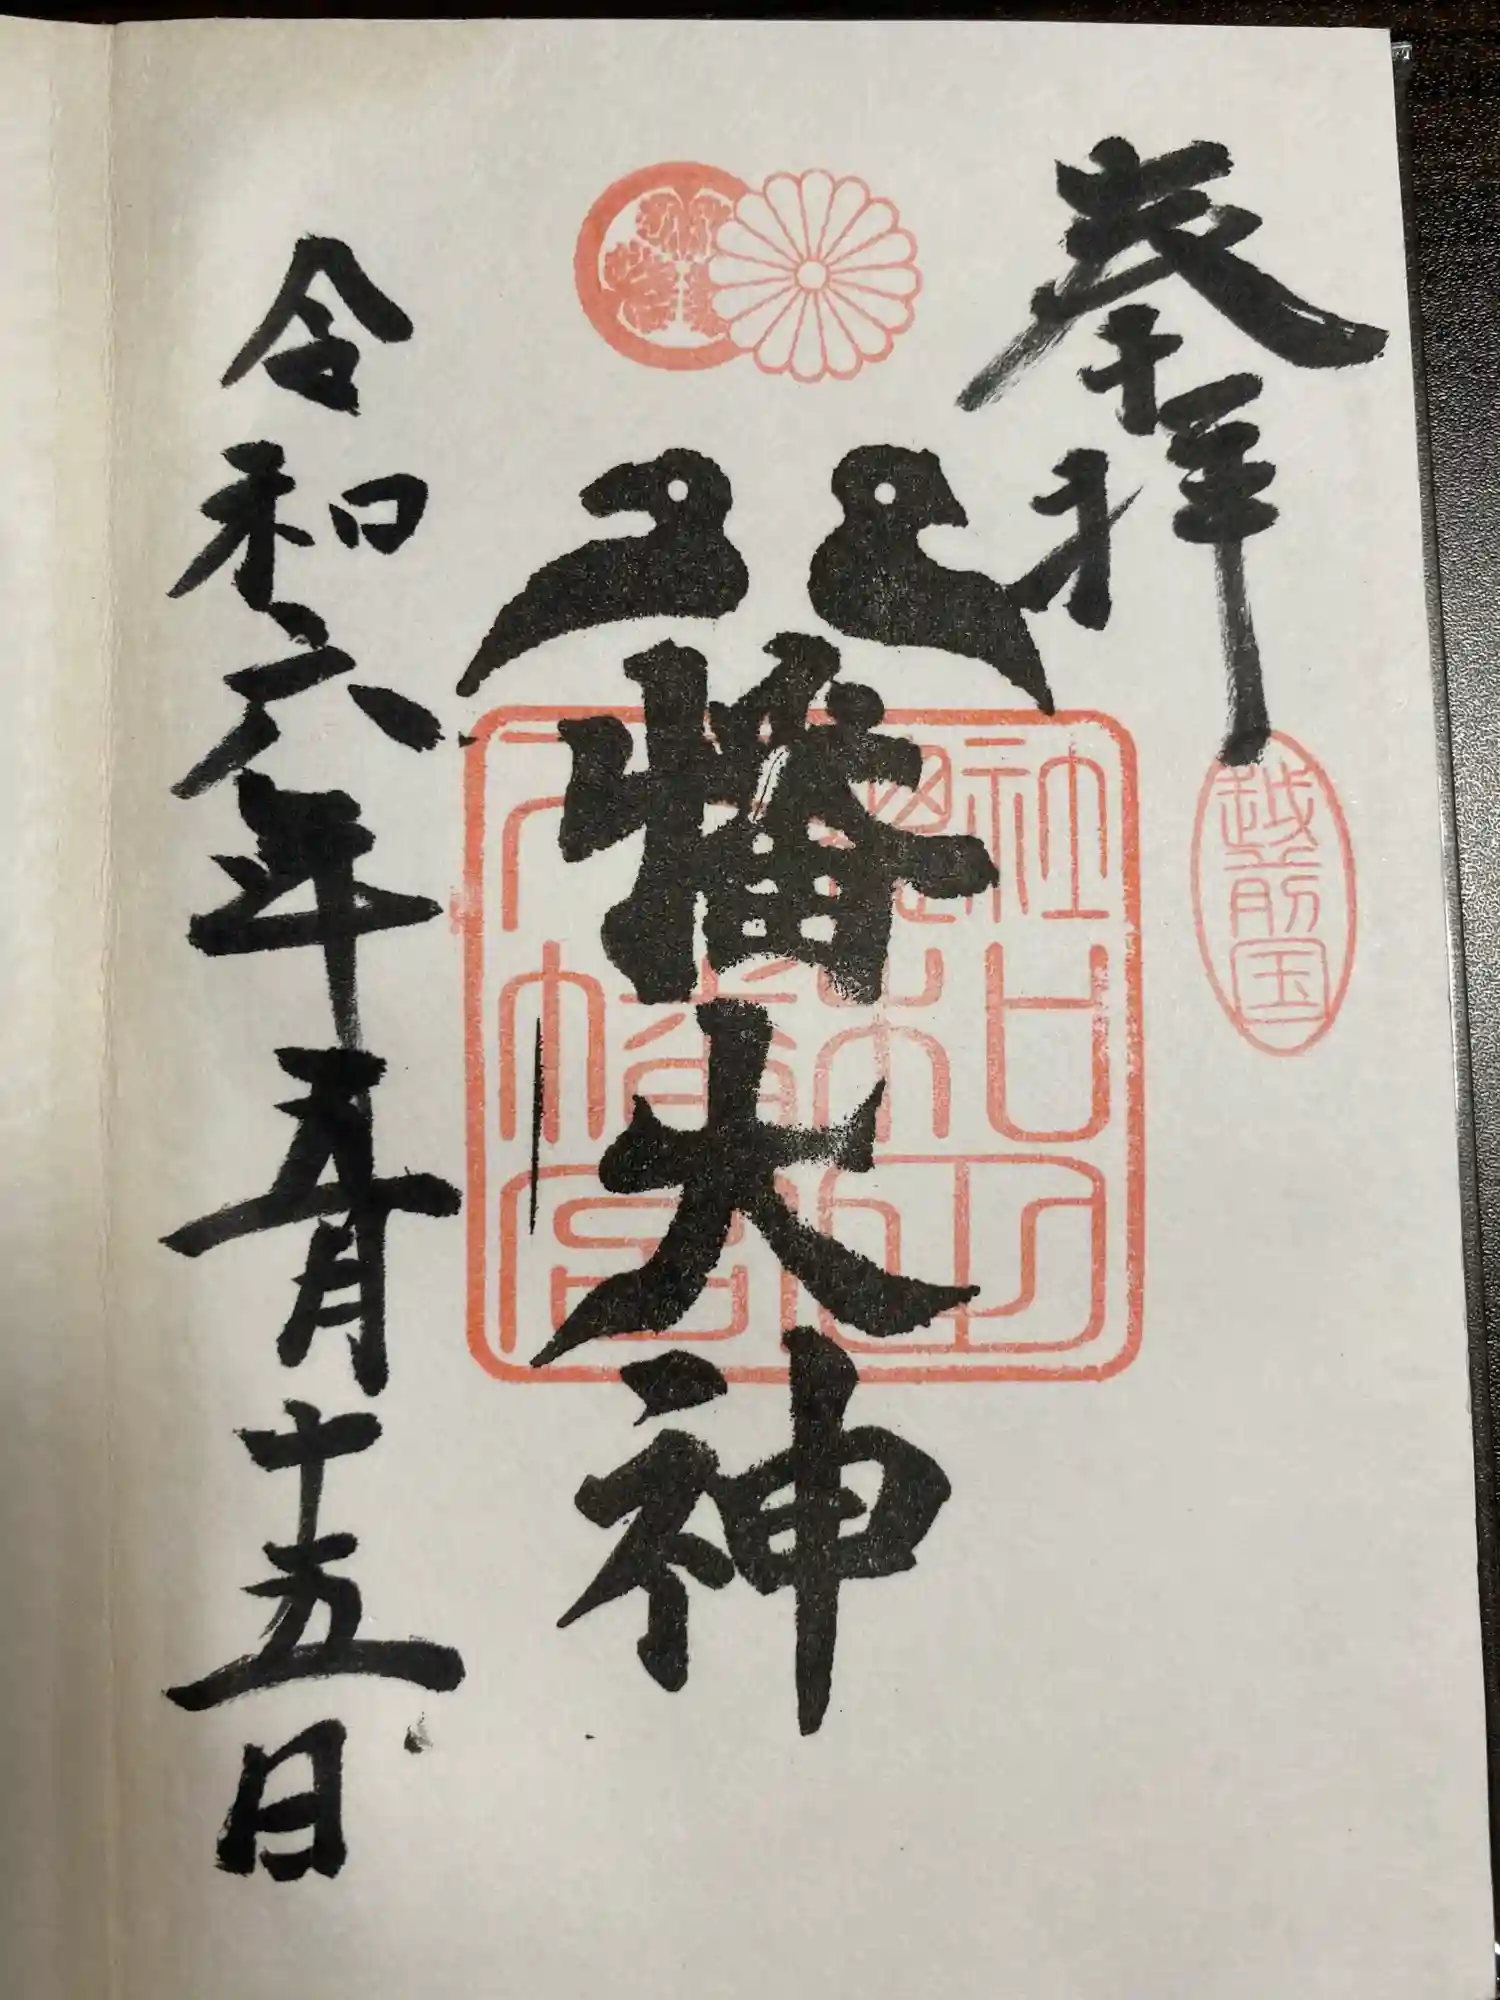 奉拝
越前国
八幡大神
總社
和田
八幡宮
令和六年五月十五日